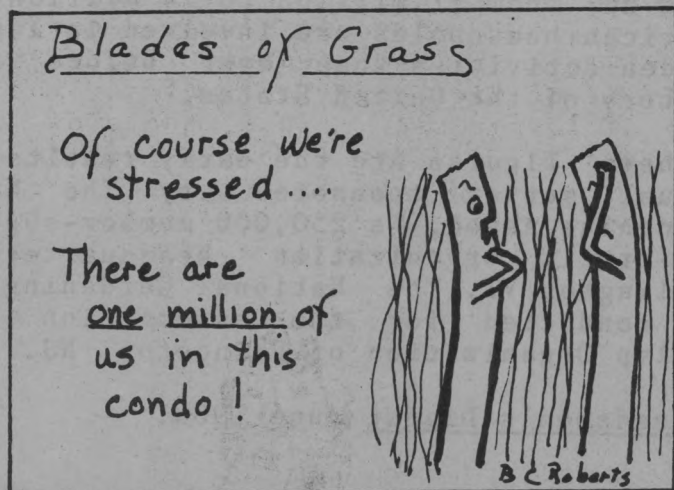 Blades of Grass
Of course we're
stressed....
There are
one million of
us in this
condo!
B C Roberts